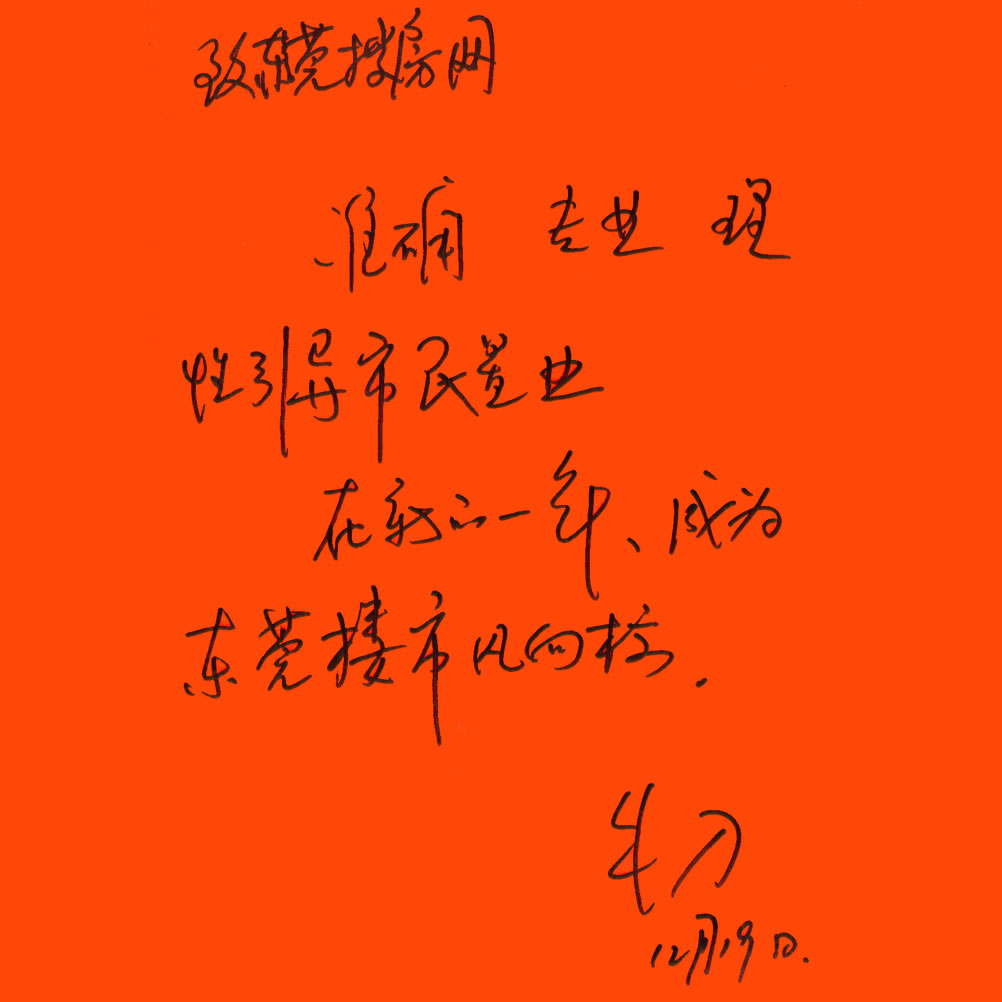 致东莞搜房网
准确 专业 理
性引导市民置业
在新的一年、成为
东莞楼市风向标.
牛刀
12月19日.